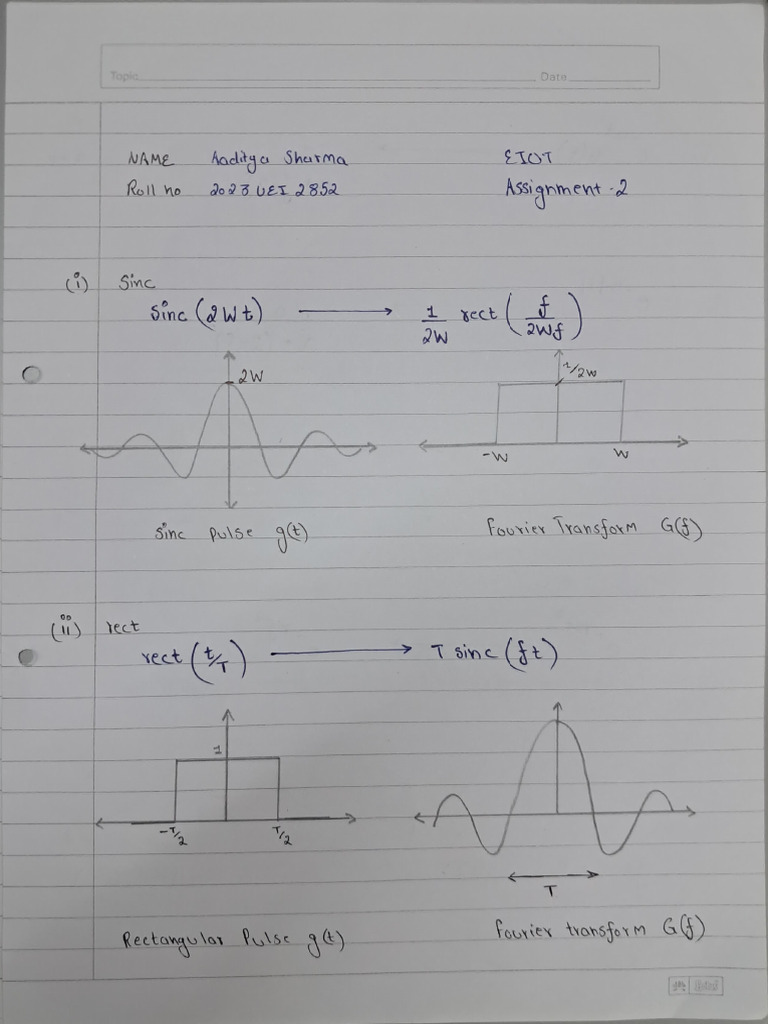 Topic Date
NAME Aaditya Sharma EIOT
Roll no 2023UEI2852 Assignment-2
(i) Sinc
Sinc (2Wt) → 1/2W rect (f/2Wf)
2W 1/2W
-W W
Sinc Pulse g(t) Fourier Transform G(f)
(ii) rect
rect (t/T) → T sinc (ft)
1
-T/2 T/2
T
Rectangular Pulse g(t) Fourier transform G(f)